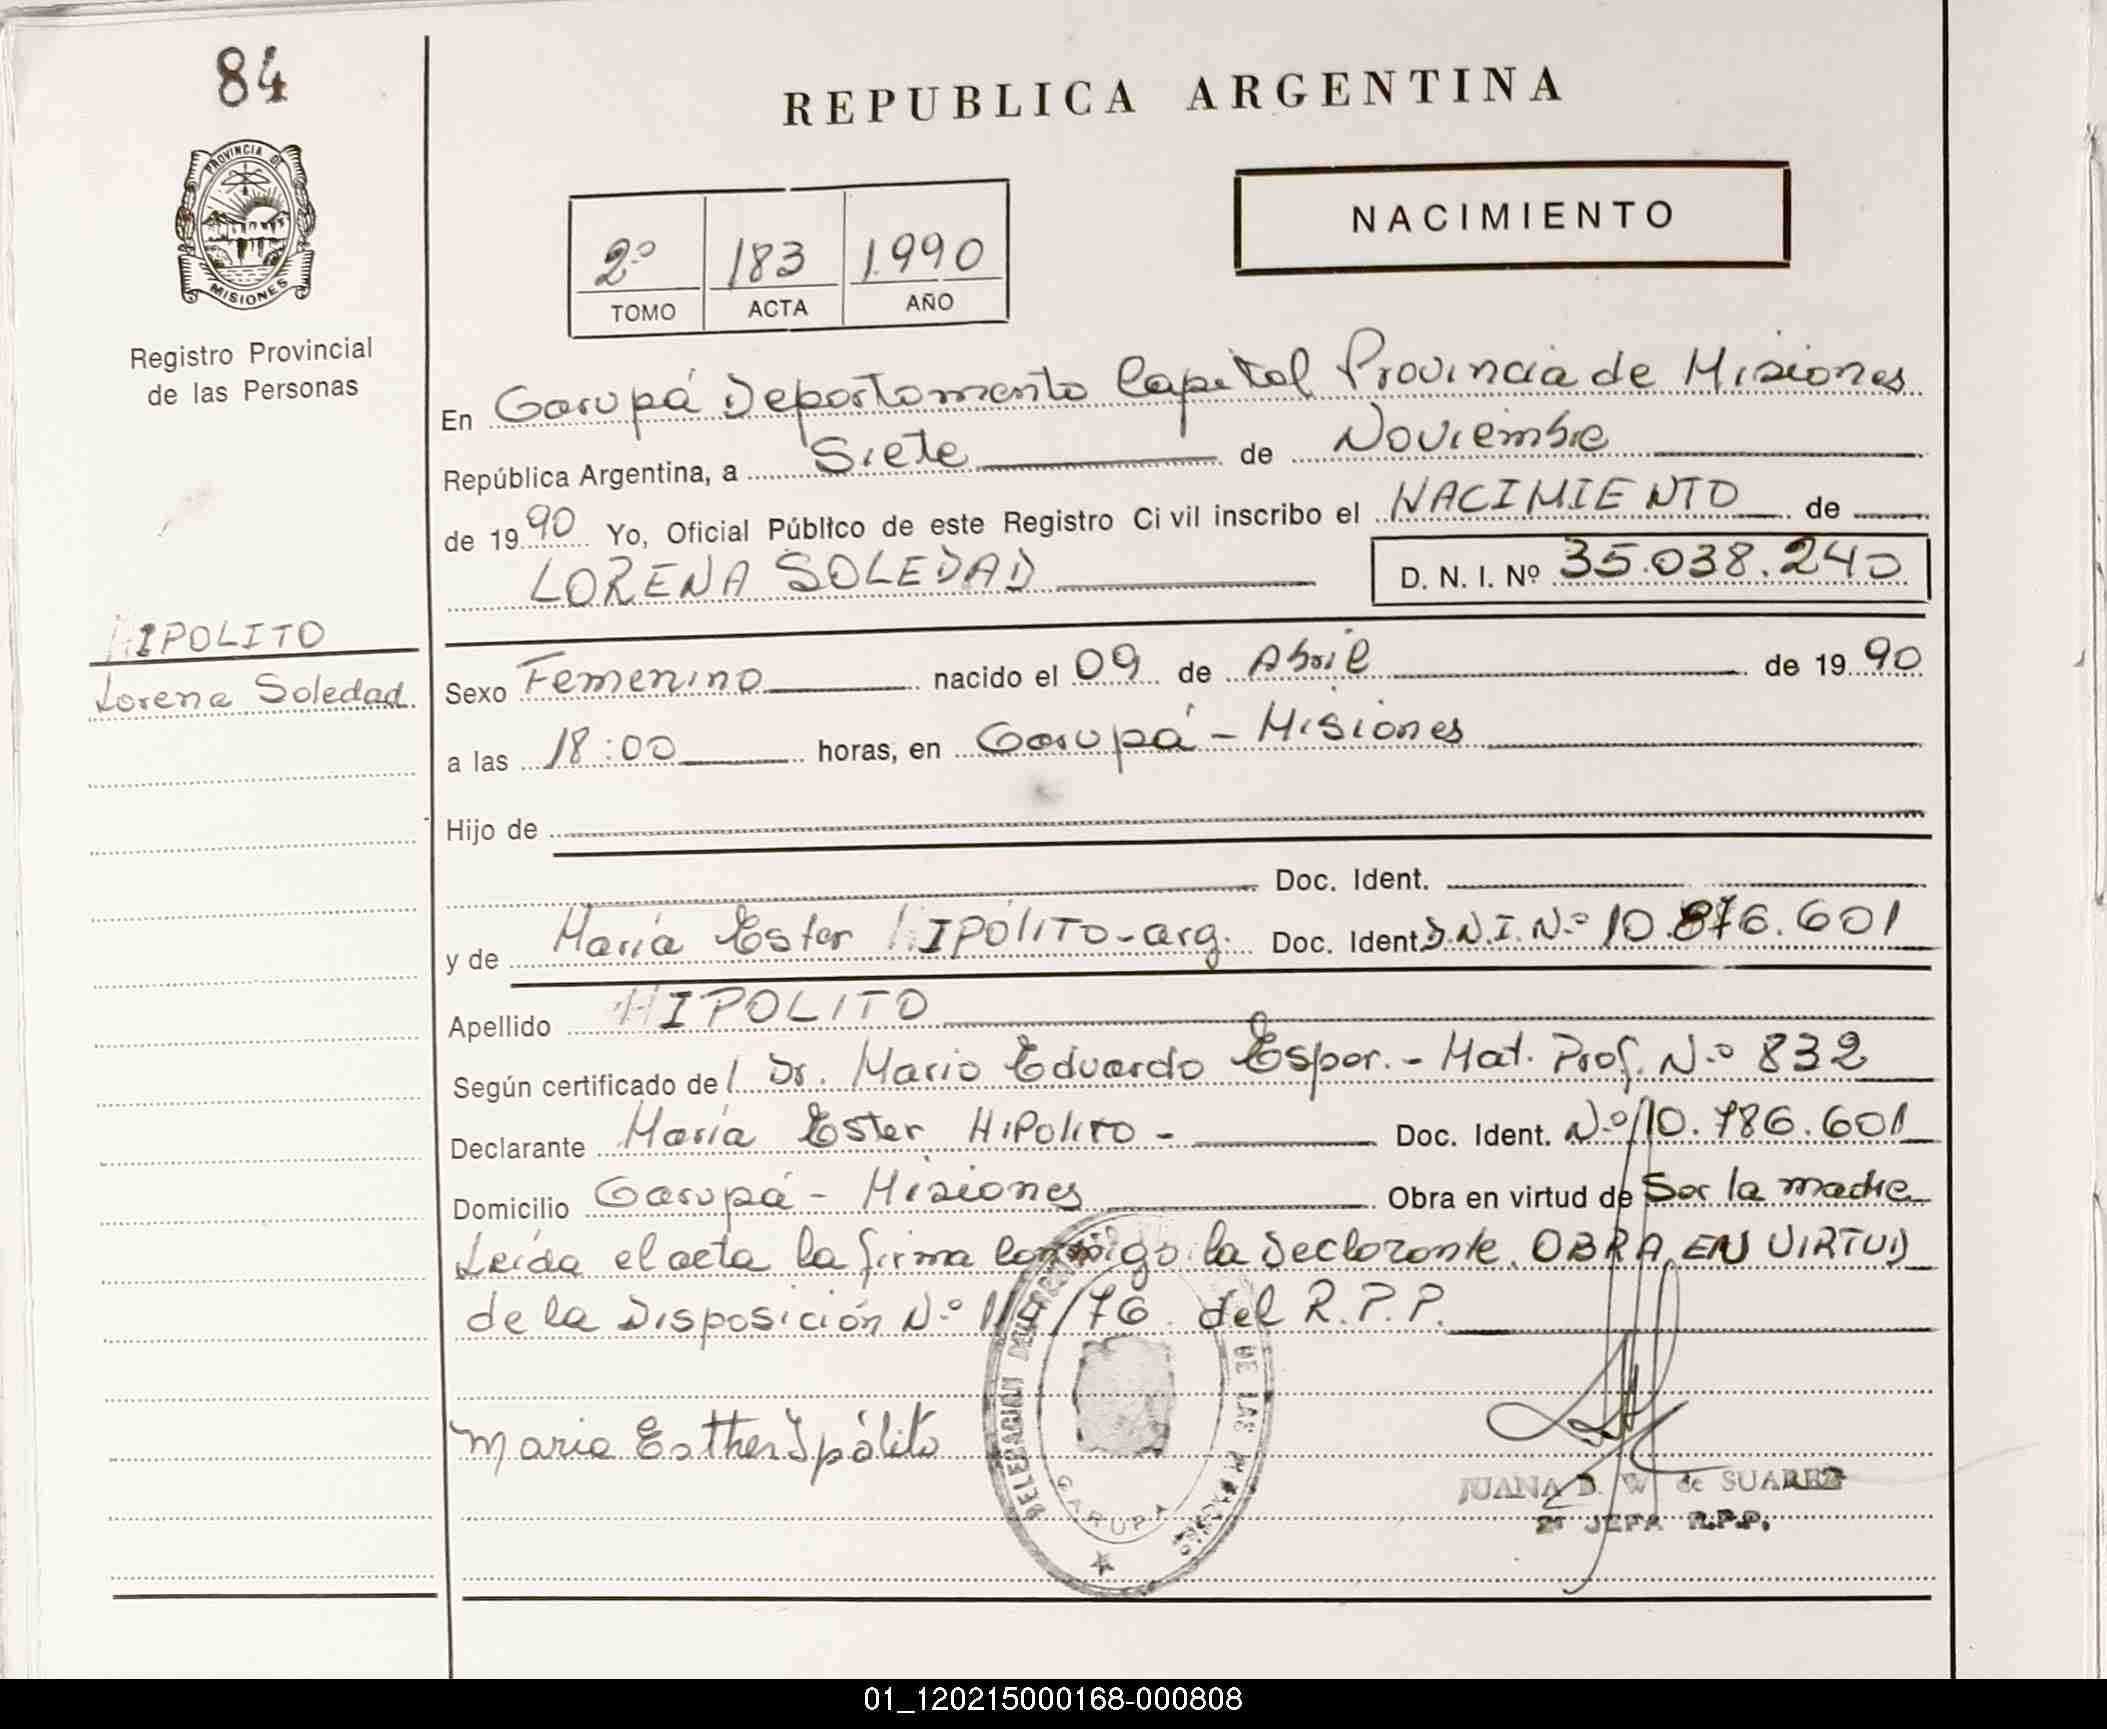 84
REPUBLICA ARGENTINA
PROVINCIA DE
MISIONES
Registro Provincial
de las Personas
2º 183 1.990
TOMO ACTA AÑO
NACIMIENTO
En Garupá Departamento Capital Provincia de Misiones
República Argentina, a Siete de Noviembre
de 19 90 Yo, Oficial Público de este Registro Civil inscribo el NACIMIENTO de
LORENA SOLEDAD D. N. I. Nº 35.038.240
HIPOLITO
Lorena Soledad
Sexo Femenino nacido el 09 de Abril de 19 90
a las 18:00 horas, en Garupá - Misiones
Hijo de
Doc. Ident.
y de María Ester HIPÓLITO-arg. Doc. Ident. D.N.I.Nº 10.876.601
Apellido HIPOLITO
Según certificado del Dr. Mario Eduardo Espor.- Mat. Prof. Nº 832
Declarante María Ester HIPOLITO - Doc. Ident. Nº 10.786.601
Domicilio Garupá - Misiones Obra en virtud de Ser la madre
Leída el acta la firma conmigo la declarante. OBRA EN VIRTUD
de la Disposición Nº /76 del R.P.P.
Maria Esther Ipólito
DELEGACION DE LAS
GARUPA
JUANA D. W. de SUAREZ
JEFA R.P.P.
01_120215000168-000808